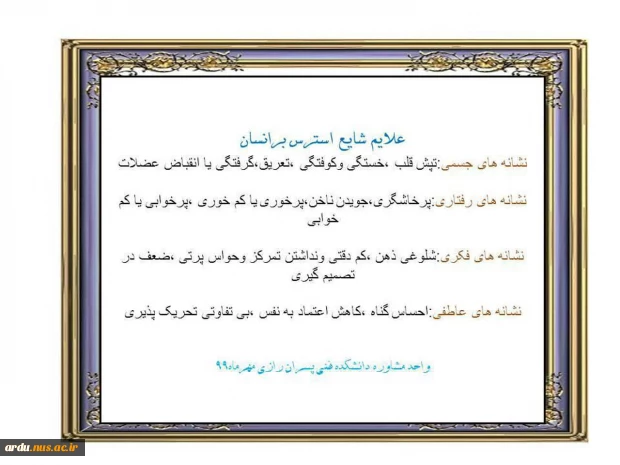 علایم شایع استرس برانسان
نشانه های جسمی:تپش قلب ،خستگی وکوفتگی ،تعریق،گرفتگی یا انقباض عضلات
نشانه های رفتاری:پرخاشگری،جویدن ناخن،پرخوری یا کم خوری ،پرخوابی یا کم
خوابی
نشانه های فکری:شلوغی ذهن ،کم دقتی ونداشتن تمرکز وحواس پرتی ،ضعف در
تصمیم گیری
نشانه های عاطفی:احساس گناه ،کاهش اعتماد به نفس ،بی تفاوتی تحریک پذیری
واحد مشاوره دانشکده فنی پسران رازی مهرماه۹۹
ardu.nus.ac.ir